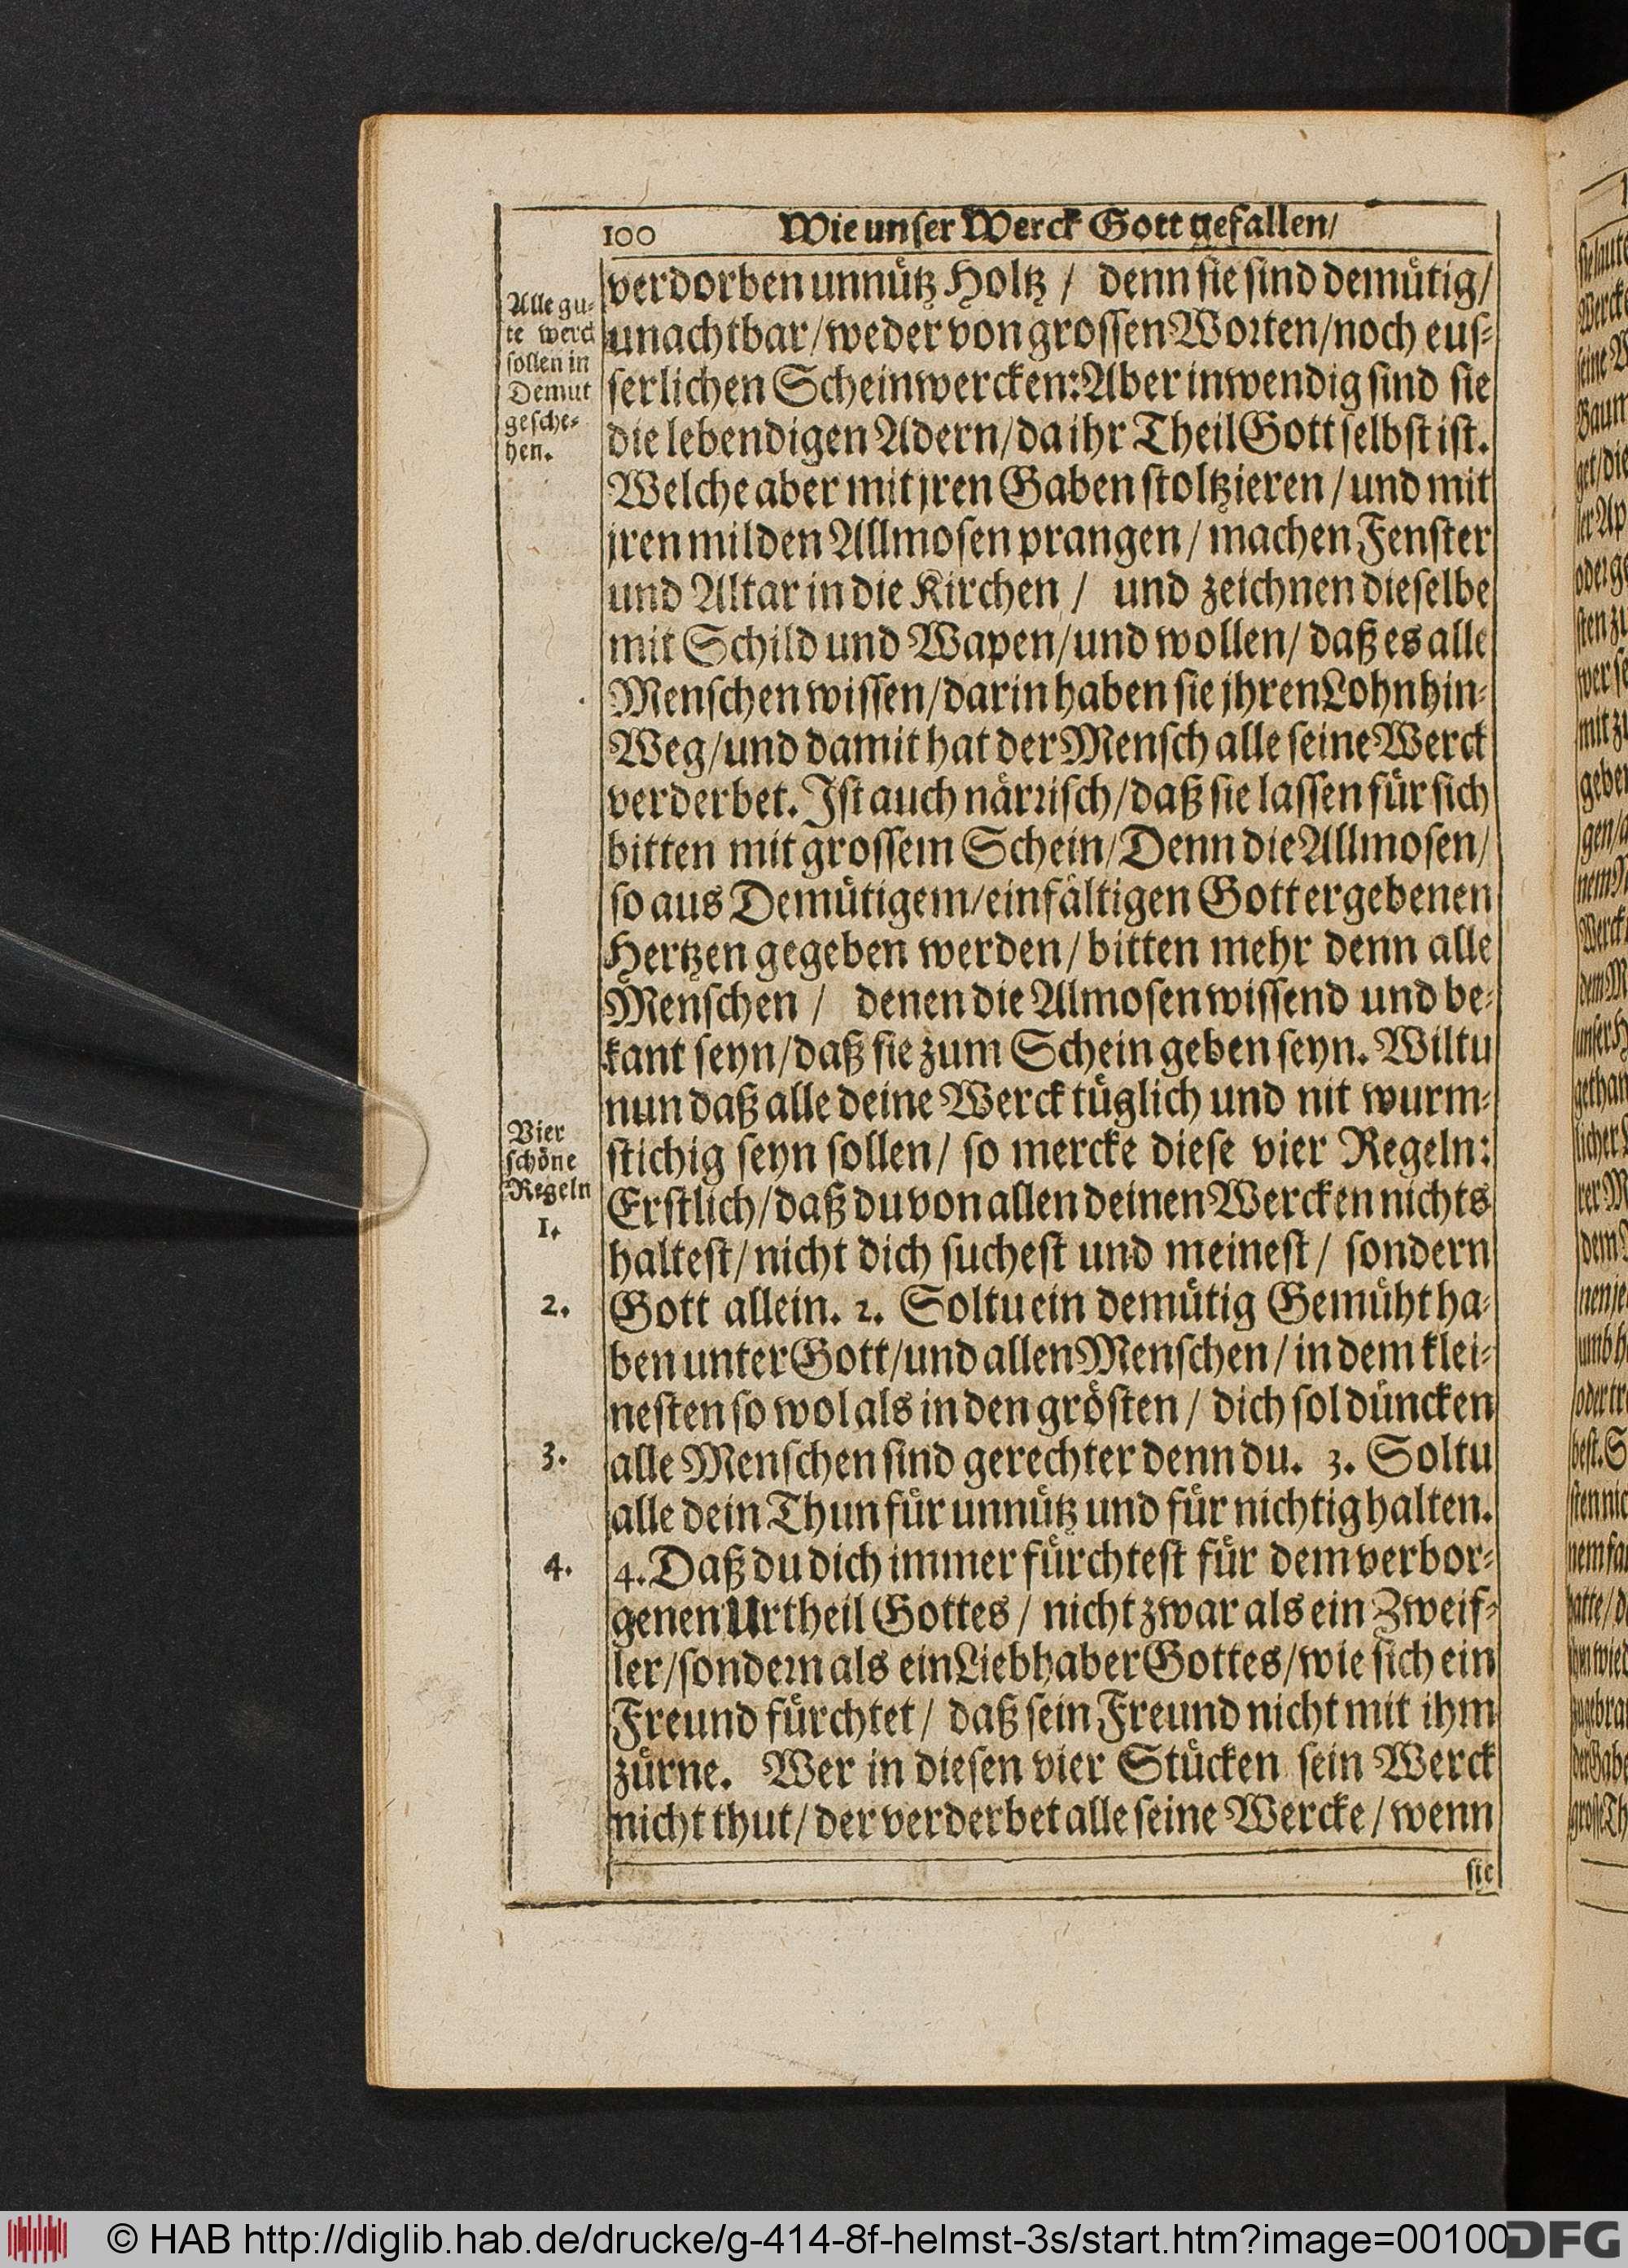 100 Wie unſer Werck Gott gefallen/
Alle gu-
te werck
ſollen in
Demut
geſche-
hen.
verdorben unnütz Holtz / denn ſie ſind demütig/
unachtbar/weder von groſſen Worten/noch euſ-
ſerlichen Scheinwercken: Aber inwendig ſind ſie
die lebendigen Adern/da ihr Theil Gott ſelbſt iſt.
Welche aber mit jren Gaben ſtoltzieren / und mit
jren milden Allmoſen prangen / machen Fenſter
und Altar in die Kirchen / und zeichnen dieſelbe
mit Schild und Wapen/und wollen/ daß es alle
Menſchen wiſſen/darin haben ſie jhren Lohn hin-
Weg/und damit hat der Menſch alle ſeine Werck
verderbet. Iſt auch närriſch/daß ſie laſſen für ſich
bitten mit groſſem Schein/Denn die Allmoſen/
ſo aus Demütigem/einfältigen Gott ergebenen
Hertzen gegeben werden/bitten mehr denn alle
Menſchen / denen die Almoſen wiſſend und be-
kant ſeyn/daß ſie zum Schein geben ſeyn. Wiltu
nun daß alle deine Werck tüglich und nit wurm-
ſtichig ſeyn ſollen/ ſo mercke dieſe vier Regeln:
Vier
ſchöne
Regeln
1.
Erſtlich/daß du von allen deinen Wercken nichts
halteſt/nicht dich ſucheſt und meineſt/ ſondern
2.
Gott allein. 2. Soltu ein demütig Gemüht ha-
ben unter Gott/und allen Menſchen/in dem klei-
neſten ſo wol als in den gröſten / dich ſol düncken
3.
alle Menſchen ſind gerechter denn du. 3. Soltu
alle dein Thun für unnütz und für nichtig halten.
4.
4. Daß du dich immer fürchteſt für dem verbor-
genen Urtheil Gottes / nicht zwar als ein Zweif-
ler/ſondern als ein Liebhaber Gottes/wie ſich ein
Freund fürchtet/ daß ſein Freund nicht mit ihm
zürne. Wer in dieſen vier Stücken ſein Werck
nicht thut/der verderbet alle ſeine Wercke/wenn
ſie
© HAB http://diglib.hab.de/drucke/g-414-8f-helmst-3s/start.htm?image=00100
DFG